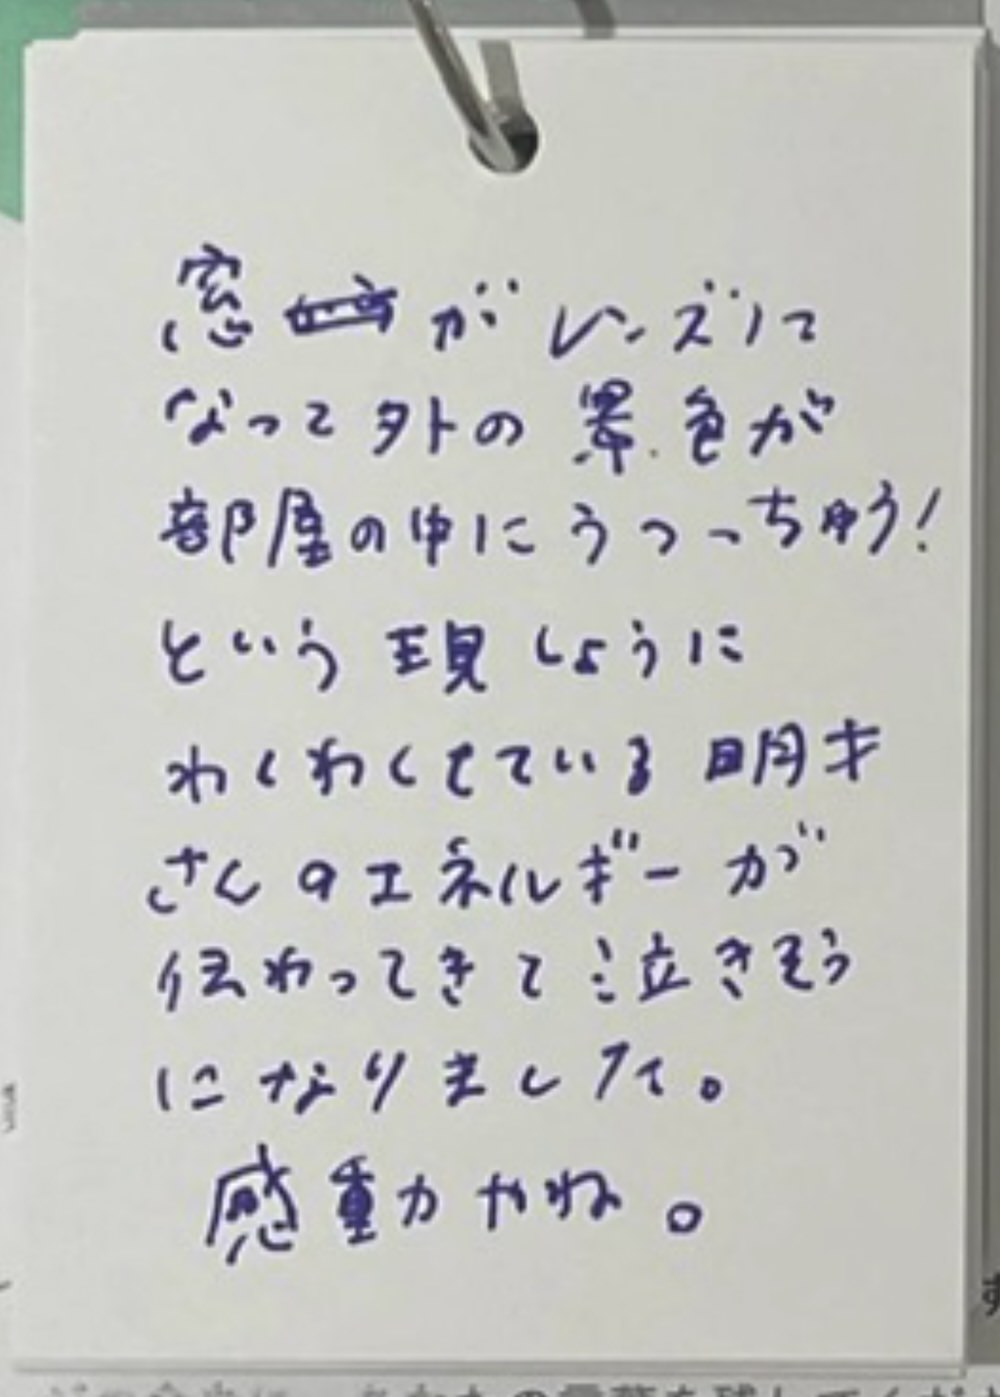 窓がレンズに
なって外の景色が
部屋の中にうつっちゅう!
という現しように
わくわくしている明才
さんのエネルギーが
伝わってきて泣きそう
になりました。
感動やね。